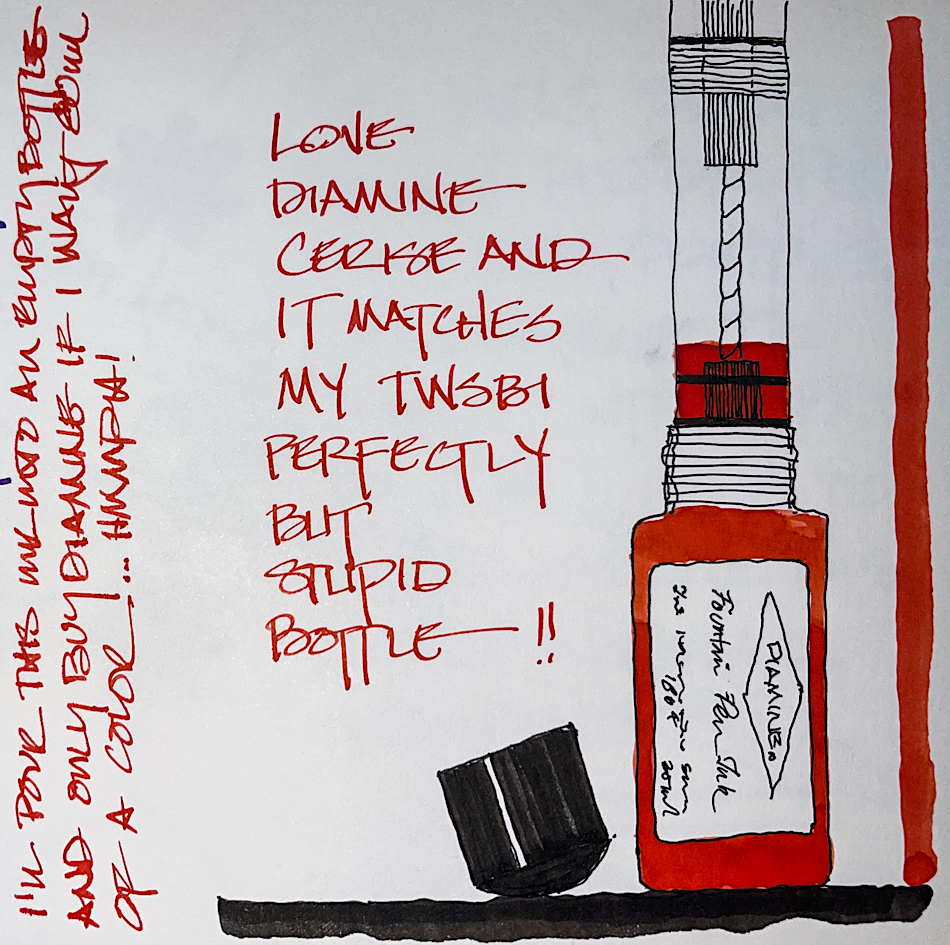 LOVE
DIAMINE
CERISE AND
IT MATCHES
MY TWSBI
PERFECTLY
BUT
STUPID
BOTTLE!!
I'LL POUR THIS INK INTO AN EMPTY BOTTLE
AND ONLY BUY DIAMINE IF I WANT 80ml
OF A COLOR!... HMMPH!
DIAMINE
Fountain Pen Ink
30ml